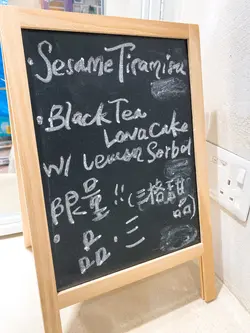 · Sesame Tiramisu
· Black Tea
Lava Cake
W/ Lemon Sorbet
限量!! (三格甜品)